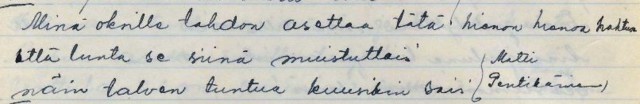 Minä oksille tahdon asettaa tätä hienon hienoa
että lunta se siinä muistuttais' (Matti
näin talven tuntua kuusikin sais (Pentikäinen)